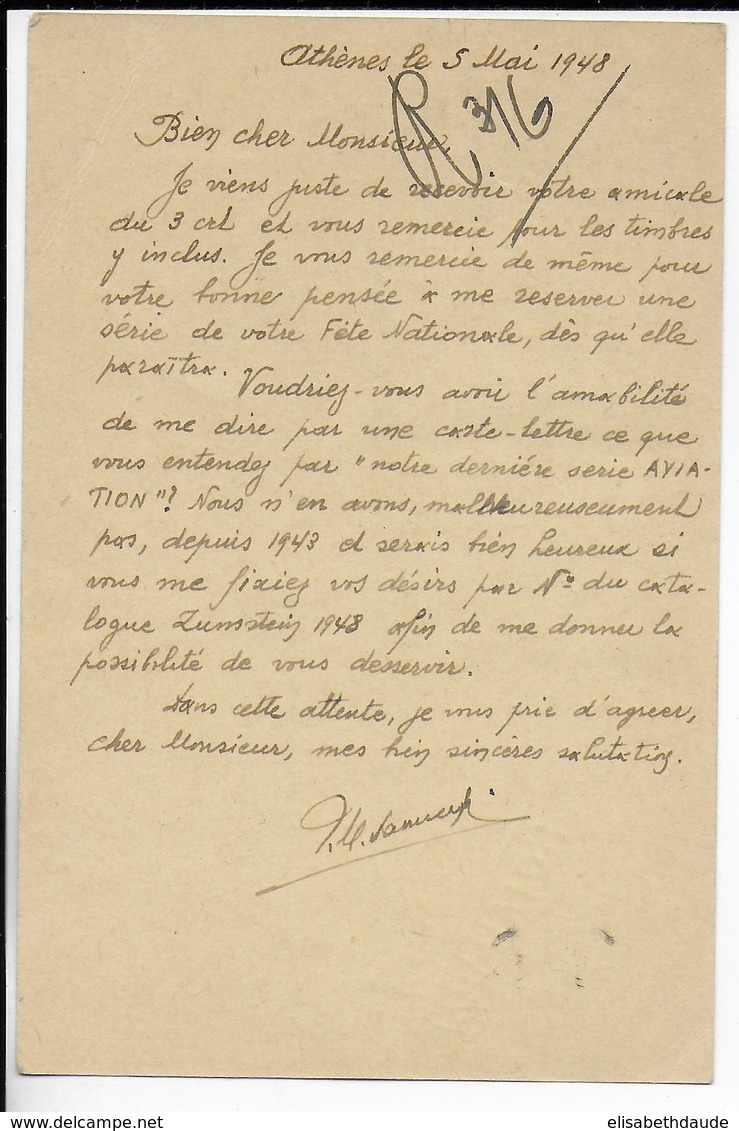 Athènes le 5 Mai 1948
R 3/6
Bien cher Monsieur,
Je viens juste de recevoir votre amicale
du 3 crt et vous remercie pour les timbres
y inclus. Je vous remercie de même pour
votre bonne pensée à me reserver une
série de votre Fête Nationale, dès qu'elle
paraîtra.
Voudriez-vous avoir l'amabilité
de me dire par une carte-lettre ce que
vous entendez par "notre dernière serie AVIA-
TION"? Nous n'en avons, malheureusement
pas, depuis 1943 et serais bien heureux si
vous me fixiez vos désirs par Nº du cata-
logue Zumstein 1948 afin de me donner la
possibilité de vous desservir.
Dans cette attente, je vous prie d'agreer,
cher Monsieur, mes bien sincères salutations.
elisabethdaude